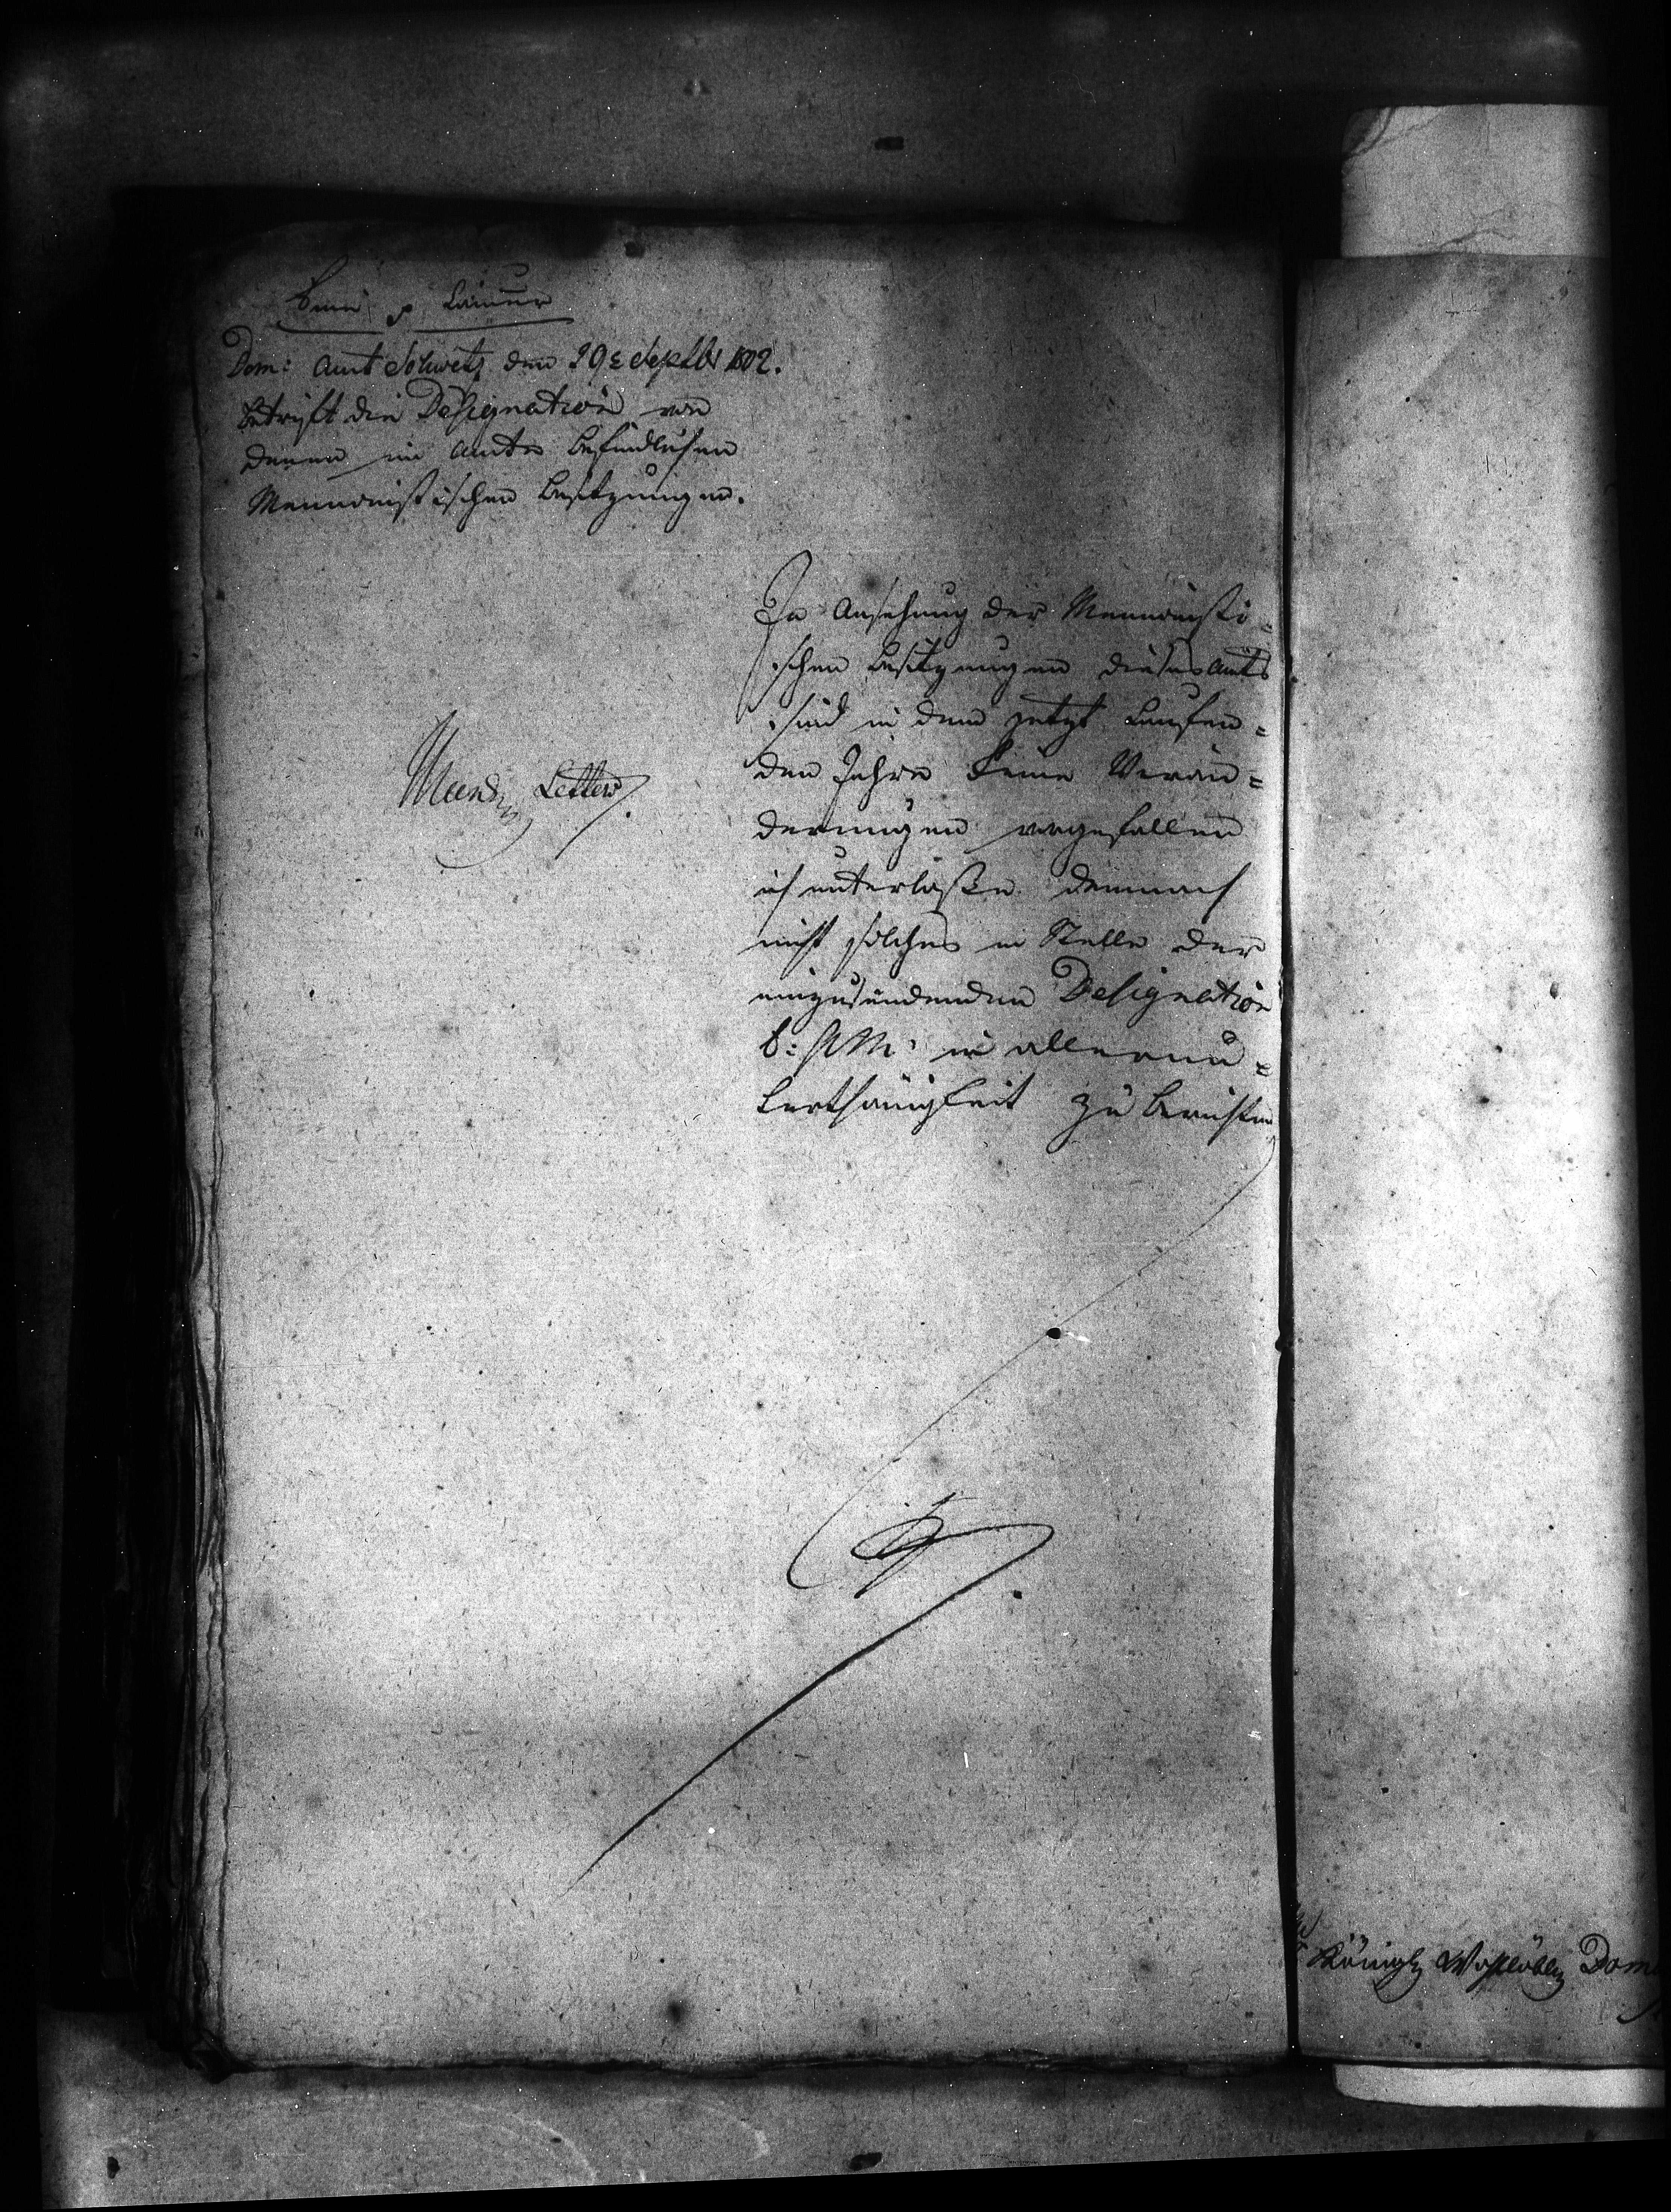 Dom: Amt Schwetz den 29t Septbr 1802.
betrift die Designation von
denen im Amte befindlichen
Mennonistischen Besitzungen.
In Ansehung der Mennonisti-
schen Besitzungen dieses Amts
sind in dem jetzt laufen-
den Jahre keine Verän-
derungen vorgefallen
ich unterlaße demnach
nicht solches in Stelle der
einzusendenden Designation
E: K M: in allerun-
terthänigkeit zu berichten
Königl Wohllöbl Dom